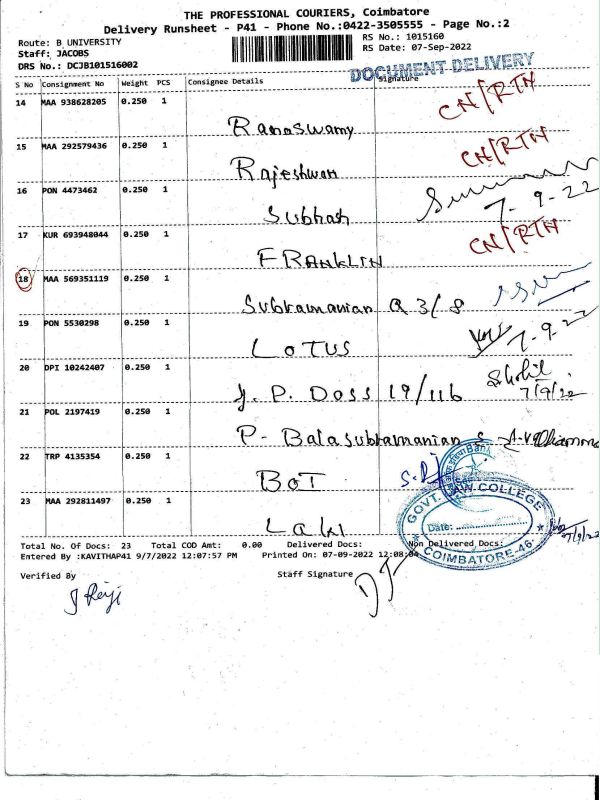 THE PROFESSIONAL COURIERS, Coimbatore
Delivery Runsheet - P41 - Phone No.:0422-3505555 - Page No.:2
Route: B UNIVERSITY
RS No.: 1015160
Staff: JACOBS
RS Date: 07-Sep-2022
DRS No.: DCJB101516002
DOCUMENT DELIVERY
S No Consignment No Weight PCS Consignee Details Signature
14 MAA 938628205 0.250 1 Ramaswamy CN/RTN
15 MAA 292579436 0.250 1 Rajeshwari CN/RTN
16 PON 4473462 0.250 1 Subhash 7-9-22
17 KUR 693948044 0.250 1 FRANKLIN CN/RTN
18 MAA 569351119 0.250 1 Subramanian Q 3/8
19 PON 5530298 0.250 1 LOTUS 7-9-22
20 DPI 10242407 0.250 1 J. P. Doss 19/116 7/9/22
21 POL 2197419 0.250 1 P. Balasubramanian
22 TRP 4135354 0.250 1 BOT
23 MAA 292811497 0.250 1 Law 7/9/22
GOVT. LAW COLLEGE
Date:
COIMBATORE-46.
Total No. Of Docs: 23 Total COD Amt: 0.00 Delivered Docs: Non Delivered Docs:
Entered By :KAVITHAP41 9/7/2022 12:07:57 PM Printed On: 07-09-2022 12:08:04
Verified By Staff Signature